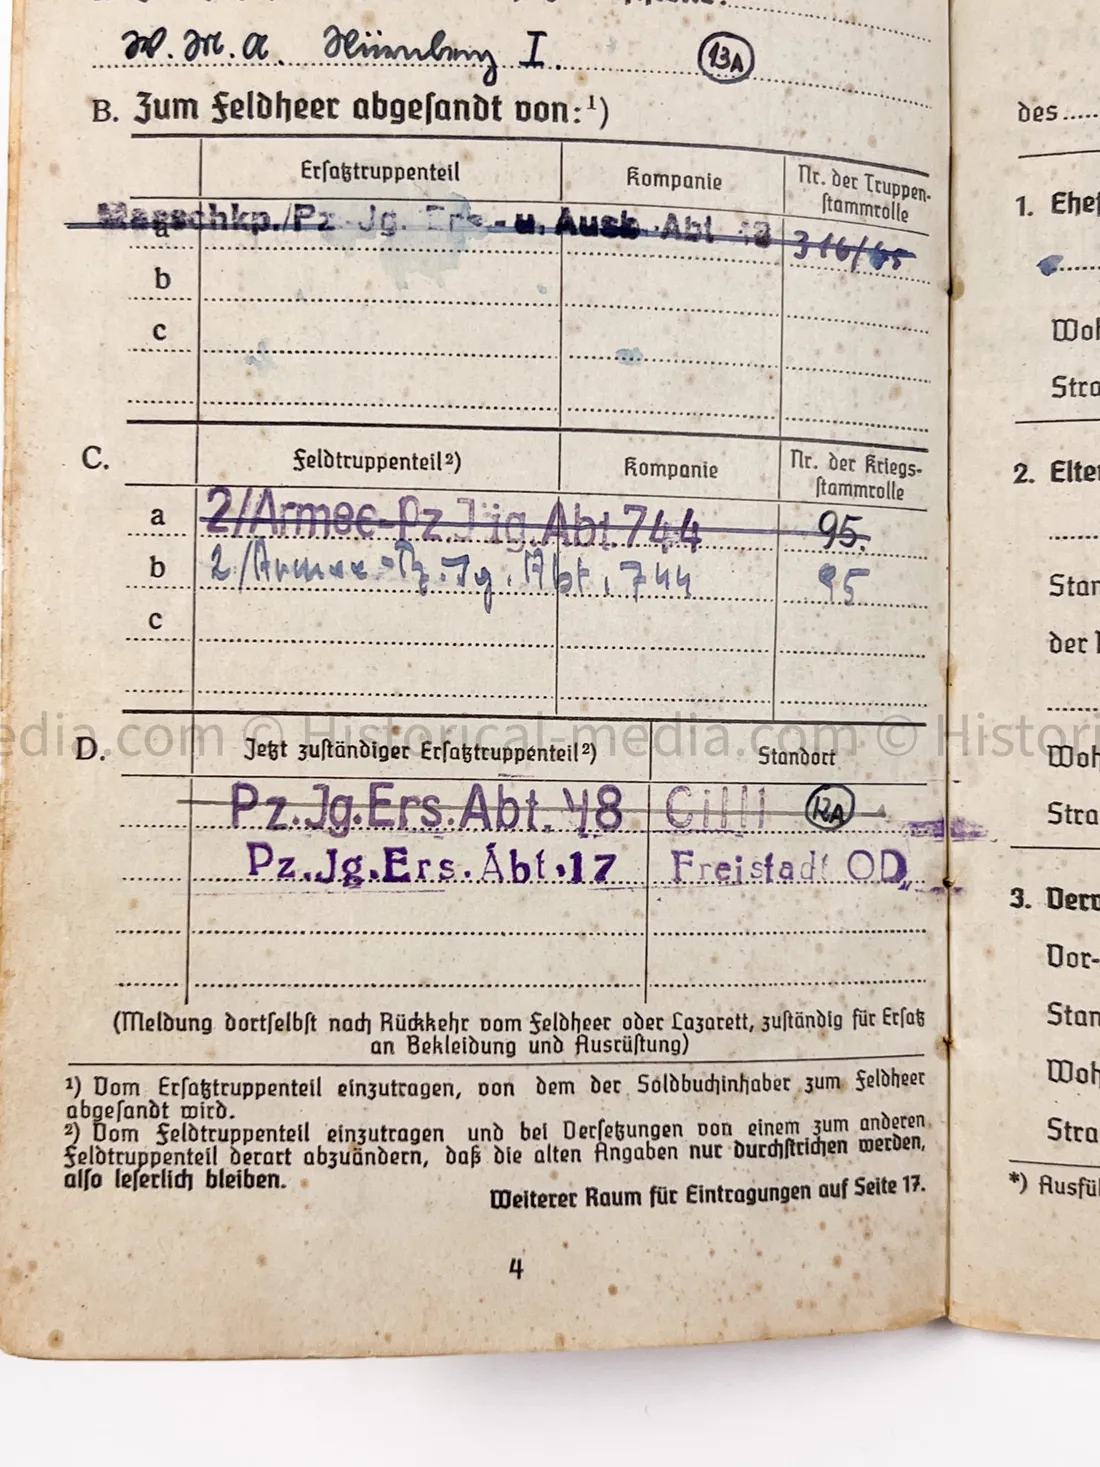 W. M. A. Nürnberg I. 13A
B. Zum Feldheer abgesandt von:¹)
Ersatztruppenteil Kompanie Nr. der Truppen-
stammrolle
a Marschkp./Pz. Jg. Ers.- u. Ausb. Abt 48 316/45
b
c
C. Feldtruppenteil²) Kompanie Nr. der Kriegs-
stammrolle
a 2/Armee-Pz.Jäg.Abt.744 95.
b 2/Armee-Pz.Jg.Abt. 744 95
c
D. Jetzt zuständiger Ersatztruppenteil²) Standort
Pz.Jg.Ers.Abt.48 Cilli 12A
Pz.Jg.Ers.Abt.17 Freistadt OD,,
(Meldung dortselbst nach Rückkehr vom Feldheer oder Lazarett, zuständig für Ersatz
an Bekleidung und Ausrüstung)
¹) Vom Ersatztruppenteil einzutragen, von dem der Soldbuchinhaber zum Feldheer
abgesandt wird.
²) Vom Feldtruppenteil einzutragen und bei Versetzungen von einem zum anderen
Feldtruppenteil derart abzuändern, daß die alten Angaben nur durchstrichen werden,
also leserlich bleiben.
Weiterer Raum für Eintragungen auf Seite 17.
4
des
1. Ehef
Woh
Stra
2. Elter
Stan
der
Woh
Stra
3. Verw
Vor-
Stan
Woh
Stra
*) Ausfü
edia.com © Historical-media.com © Histori